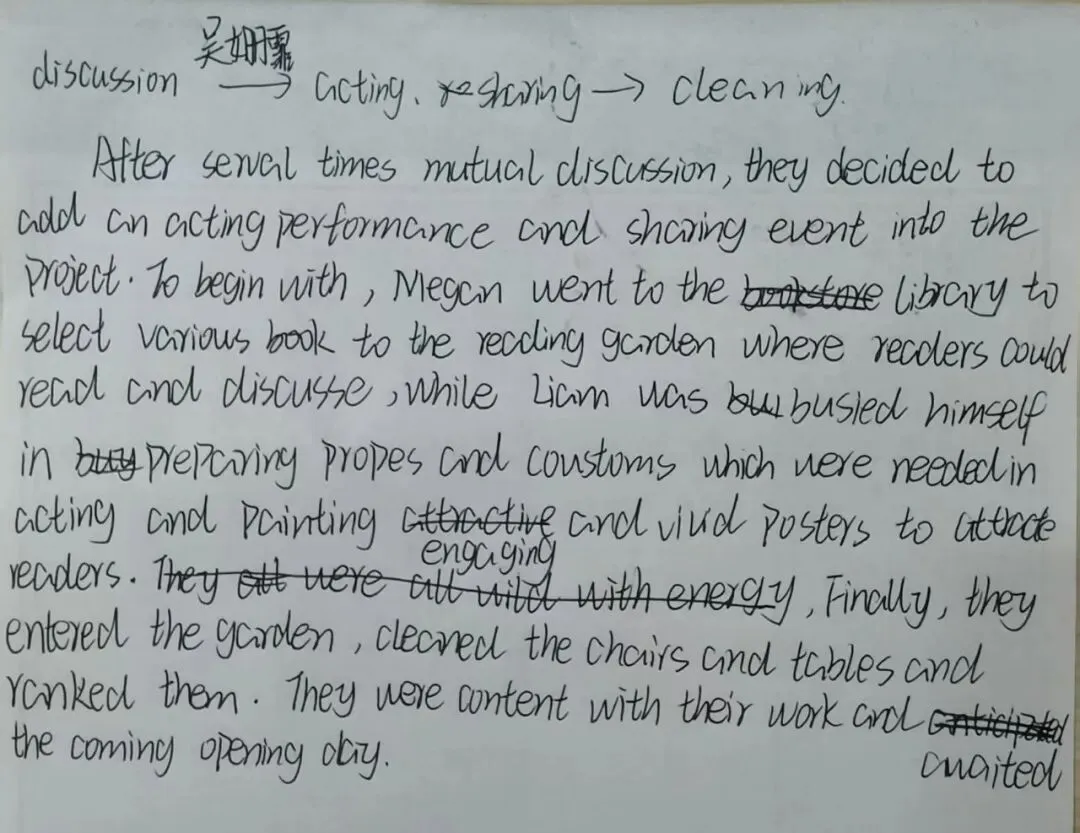 吴姗霏
discussion → acting、sharing → cleaning.
After serval times mutual discussion, they decided to
add an acting performance and sharing event into the
project. To begin with, Megan went to the bookstore library to
select various book to the reading garden where readers could
read and discusse, while Liam was busied himself
in buy preparing propes and coustoms which were needed in
acting and painting attractive and vivid posters to attracte
engaging
readers. They all were all wild with energy, Finally, they
entered the garden, cleaned the chairs and tables and
ranked them. They were content with their work and anticipated
the coming opening day. awaited